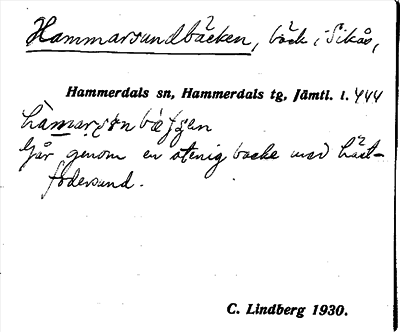 Hammarsundbäcken, bäck i Sikås,
Hammerdals sn, Hammerdals tg, Jämtl. l. 444
Går genom en stenig backe med häst-
fodersund.
C. Lindberg 1930.